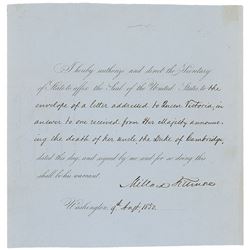 I hereby authorize and direct the Secretary
of State to affix the Seal of the United States to the
envelope of a letter addressed to Queen Victoria, in
answer to one received from Her Majesty announc-
ing the death of her uncle, the Duke of Cambridge,
dated this day, and signed by me and for so doing this
shall be his warrant.
Millard Fillmore
Washington, 9th Augt, 1850.